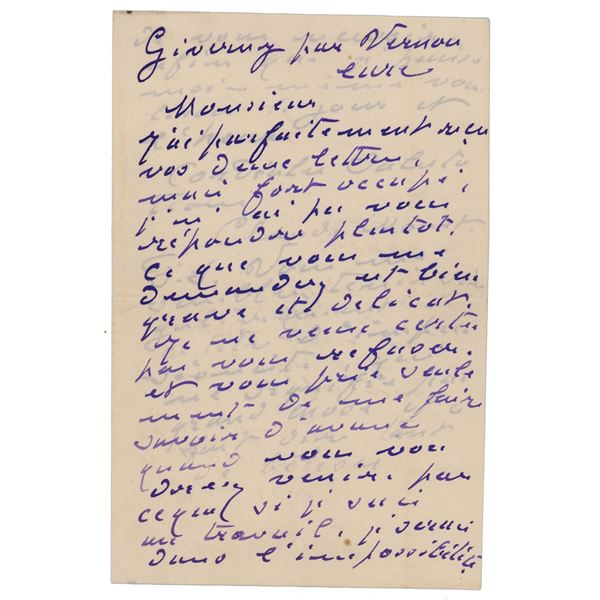 Giverny par Vernon
eure
Monsieur
j'ai parfaitement reçu
vos deux lettres,
mais fort occupé,
je n'ai pu vous
répondre plutot.
Ce que vous me
demandez est bien
grave et delicat.
Je ne veux certes
pas vous refuser.
et vous prie seule
ment de me faire
savoir d'avance
quand vous vou
drez venir. par
ceque si je suis
au travail, je serai
dans l'impossibilité